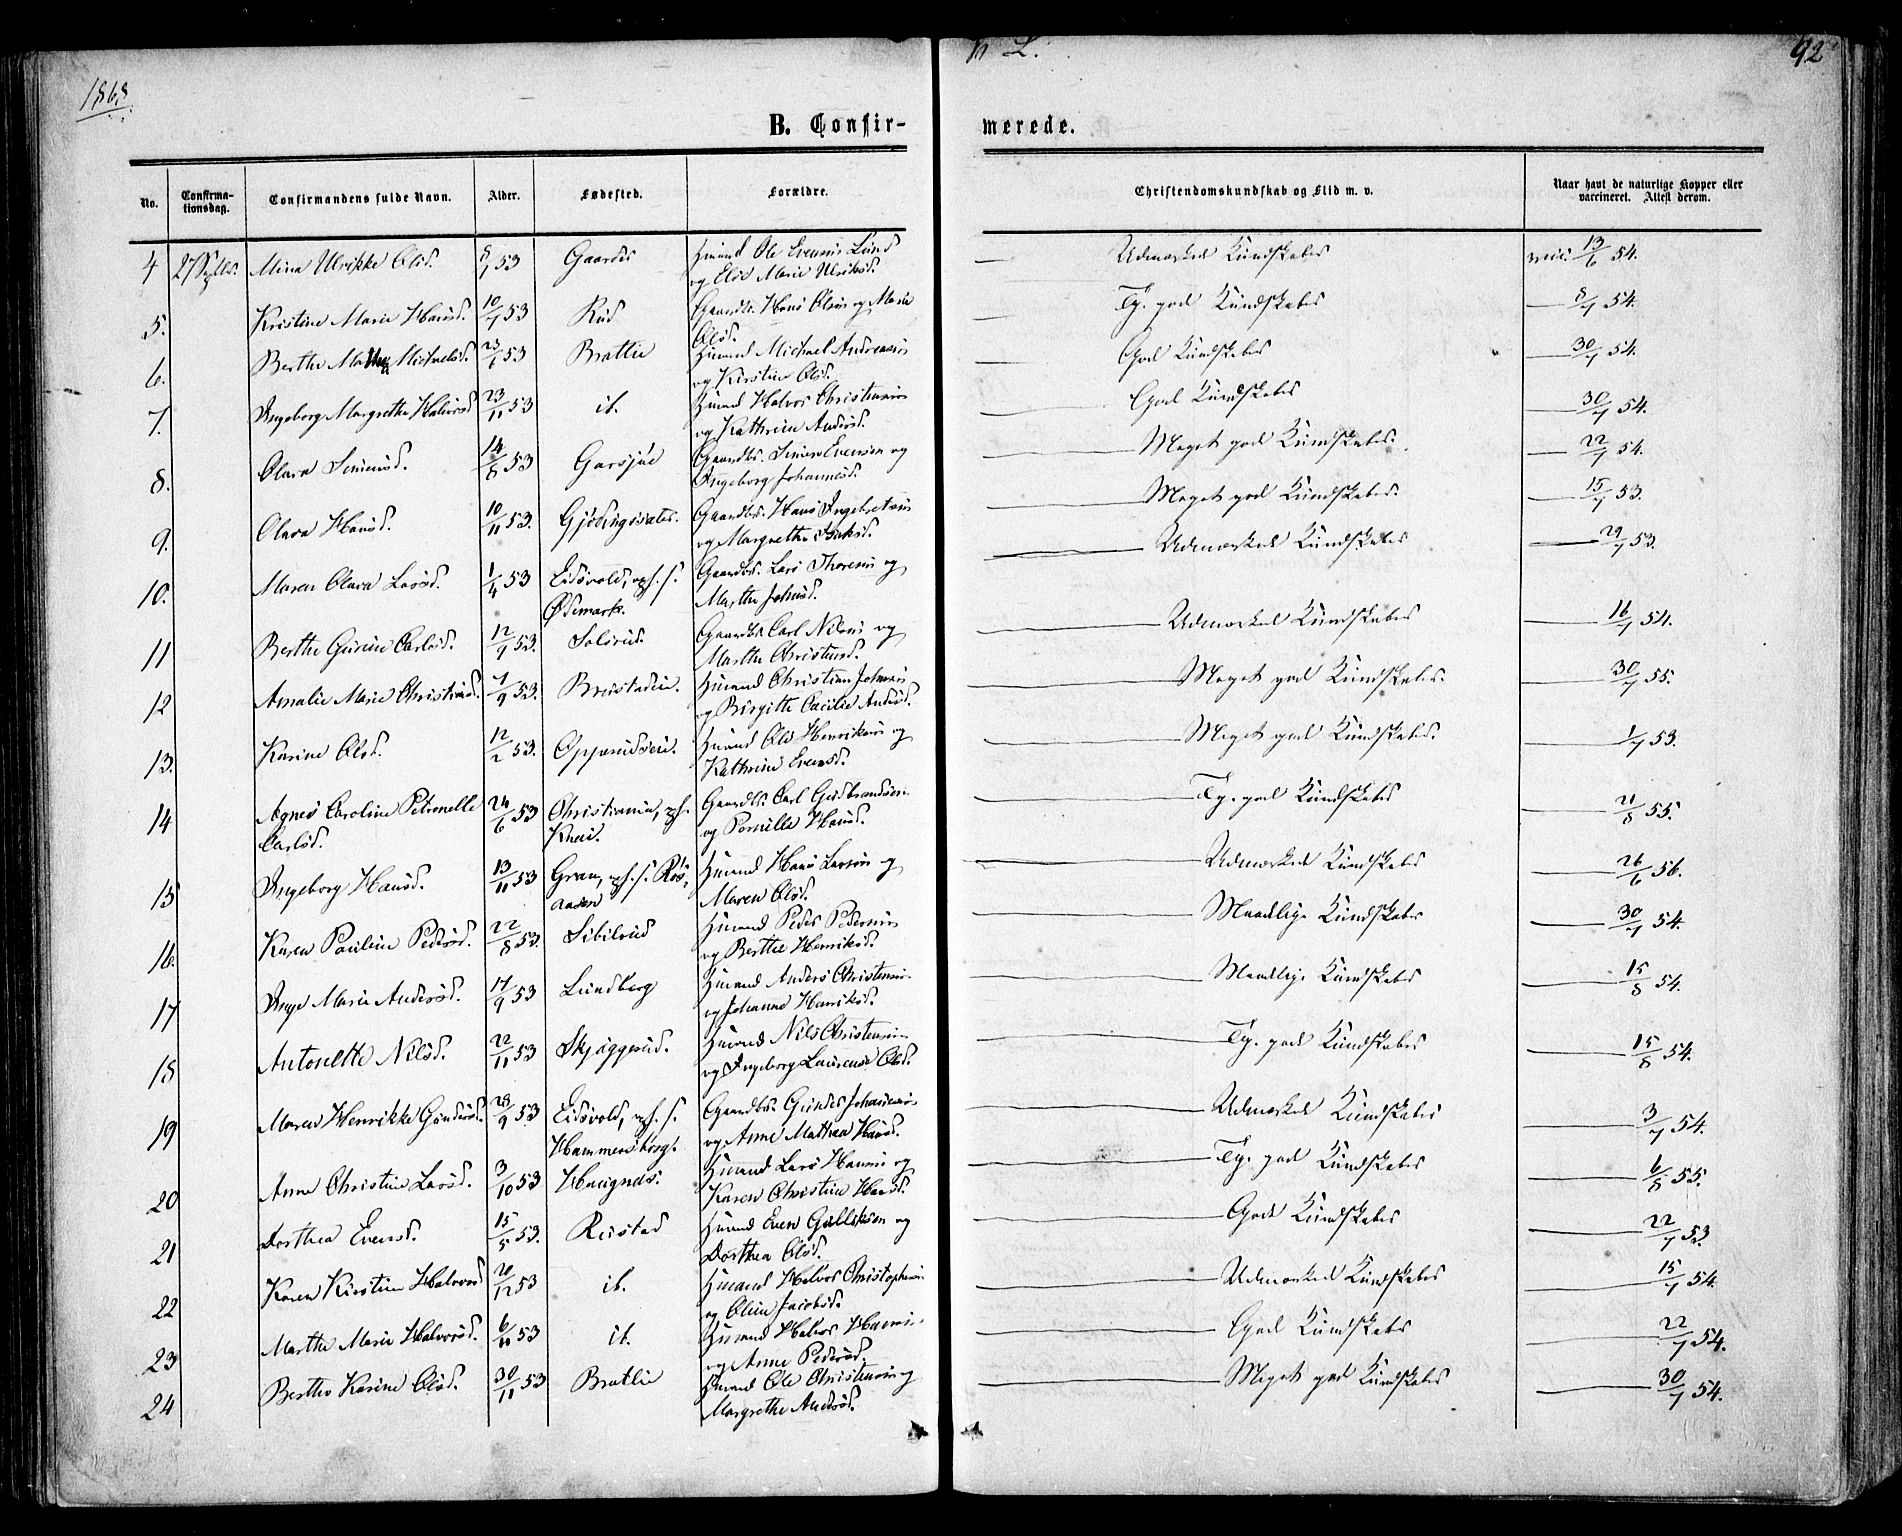 1868
92
B. Confirmerede.
No. Confirmationsdag. Confirmandens fulde Navn. Alder. Fødested. Forældre. Christendomskundskab og Flid m. v. Naar havt de naturlige Kopper eller vaccineret. Attest derom.
4 27 Septbr. Mina Ulrikke Olsd. 53 Gaarder Huusmd Ole Evensen Lund Udmærket Kundskaber 13/6 54.
og Else Marie Ulriksd.
5. Kristine Marie Hansd. 10/7 53 Rud Gaardbr. Hans Olsen og Marie Tg. god Kundskaber 8/7 54.
Olsd.
6. Berthe Michaelsd. 53 Bratlie Huusmd Michael Andreasen God Kundskaber 30/7 54.
og Kirstine Olsd.
7. Ingeborg Margrethe Halvorsd 23/11 53 ib. Huusmd Halvor Christensen God Kundskaber 30/7 54.
og Kathrine Andersd.
8. Olava Simensd. 14/8 53 Garsjøe Gaardbr. Simen Evensen og Meget god Kundskaber. 22/7 54.
Ingeborg Johannesd.
9. Olava Hansd. 10/11 53. Gaardbr. Hans Ingebretsen Meget god Kundskaber. 15/7 53.
og Margrethe Isaksd.
10. Maren Olava Larsd. 1/4 53 Eidsvold, oph. f. Gaardbr. Lars Thoresen og Udmærket Kundskaber 29/7 53.
Ødemark. Marthe Johnsd.
11 Berthe Gurine Carlsd. 12/9 53. Solsrud Gaardbr. Carl Nilsen og Udmærket Kundskaber 16/7 54.
Marthe Christensd.
12 Amalie Marie Christiansd. 53. Huusmd Christian Johnsen Meget god Kundskaber. 30/7 55.
og Birgitte Cæcilie Andersd.
13. Karine Olsd. 12/2 53. Opperudseie. Huusmd Ole Henriksen og Meget god Kundskaber. 1/7 53.
Kathrine Evensd.
14 Agnes Caroline Petronelle 24/6 53 Christiania, oph. Gaardbr. Carl Gudbrandsen Tg. god Kundskaber 21/8 55.
Carlsd. og Pernille Hansd.
15 Ingeborg Hansd. 13/11 53 Gran, oph. f. Huusmd Hans Larsen og Udmærket Kundskaber 26/6 56.
aasen Maren Olsd.
16. Karen Pauline Pedersd. 22/8 53. Sibilrud Huusmd Peder Pedersen Maadelige Kundskaber 30/7 54.
og Berthe Henriksd.
17 Inge Marie Andersd. 17/9 53 Lundberg Huusmd Anders Christensen Maadelige Kundskaber 15/8 54.
og Johanne Henriksd.
18 Antonette Nilsd. 22/11 53 Skjæggerud. Huusmd Nils Christensen Tg. god Kundskaber 15/8 54.
og Ingeborg Laurense Olsd.
19 Maren Henrikke Gundersd. 28/9 53 Eidsvold, oph. f. Gaardbr. Gunder Johannesen Udmærket Kundskaber 3/7 54.
Hammersborg. og Anne Mathea Hansd.
20 Anne Christine Larsd. 3/10 53 Haugnæs. Huusmd Lars Hansen og Tg. god Kundskaber 6/8 55.
Karen Christine Hansd.
21 Dorthea Evensd. 15/5 53. Rustad Huusmd Even Gulliksen og God Kundskaber 22/7 53.
Dorthea Olsd.
22 Karen Kirstine Halvorsd 20/12 53 ib. Huusmd Halvor Christophersen Udmærket Kundskaber 15/7 54.
og Oline Jacobsd.
23 Marthe Marie Halvorsd. 53 ib. Huusmd Halvor Hansen God Kundskaber 22/7 54.
og Anne Pedersd.
24 Berthe Karine Olsd. 30/11 53 Bratlie Huusmd Ole Christensen og Meget god Kundskaber 30/7 54.
Margrethe Andersd.